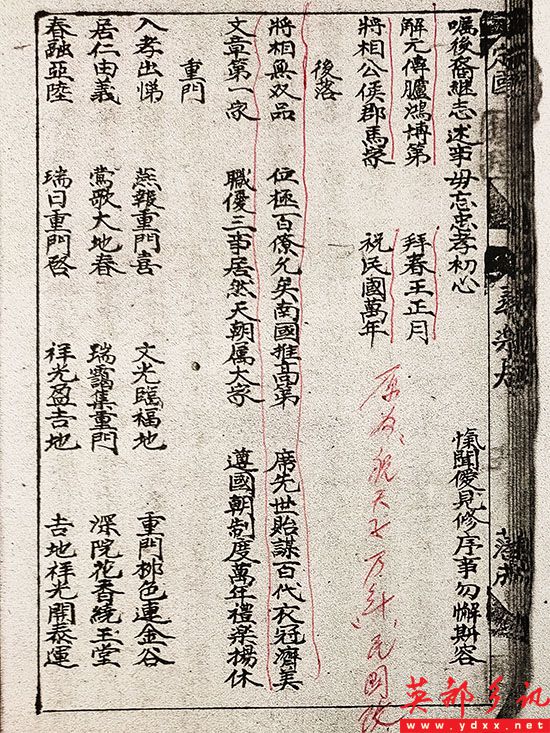 囑後裔継志述事毋忘忠孝初心
愾聞僾見修序事勿懈斯容
解元傳臚鴻博第
拜春王正月
將相公侯郡馬家
祝民國萬年
原為祝天子万年
民国改
後落
將相無双品
位極百僚允矣南國推高第
席先世貽謀百代衣冠濟美
文章第一家
職優三事居然天朝属大家
遵國朝制度萬年禮樂揚休
重門
入孝出悌
燕報重門喜
文光臨福地
重門柳色連金谷
居仁由義
鶯歌大地春
瑞靄集重門
深院花香繞玉堂
春融亞陸
瑞日重門啓
祥光盈吉地
吉地祥光開泰運
英都乡讯
www.ydxx.net